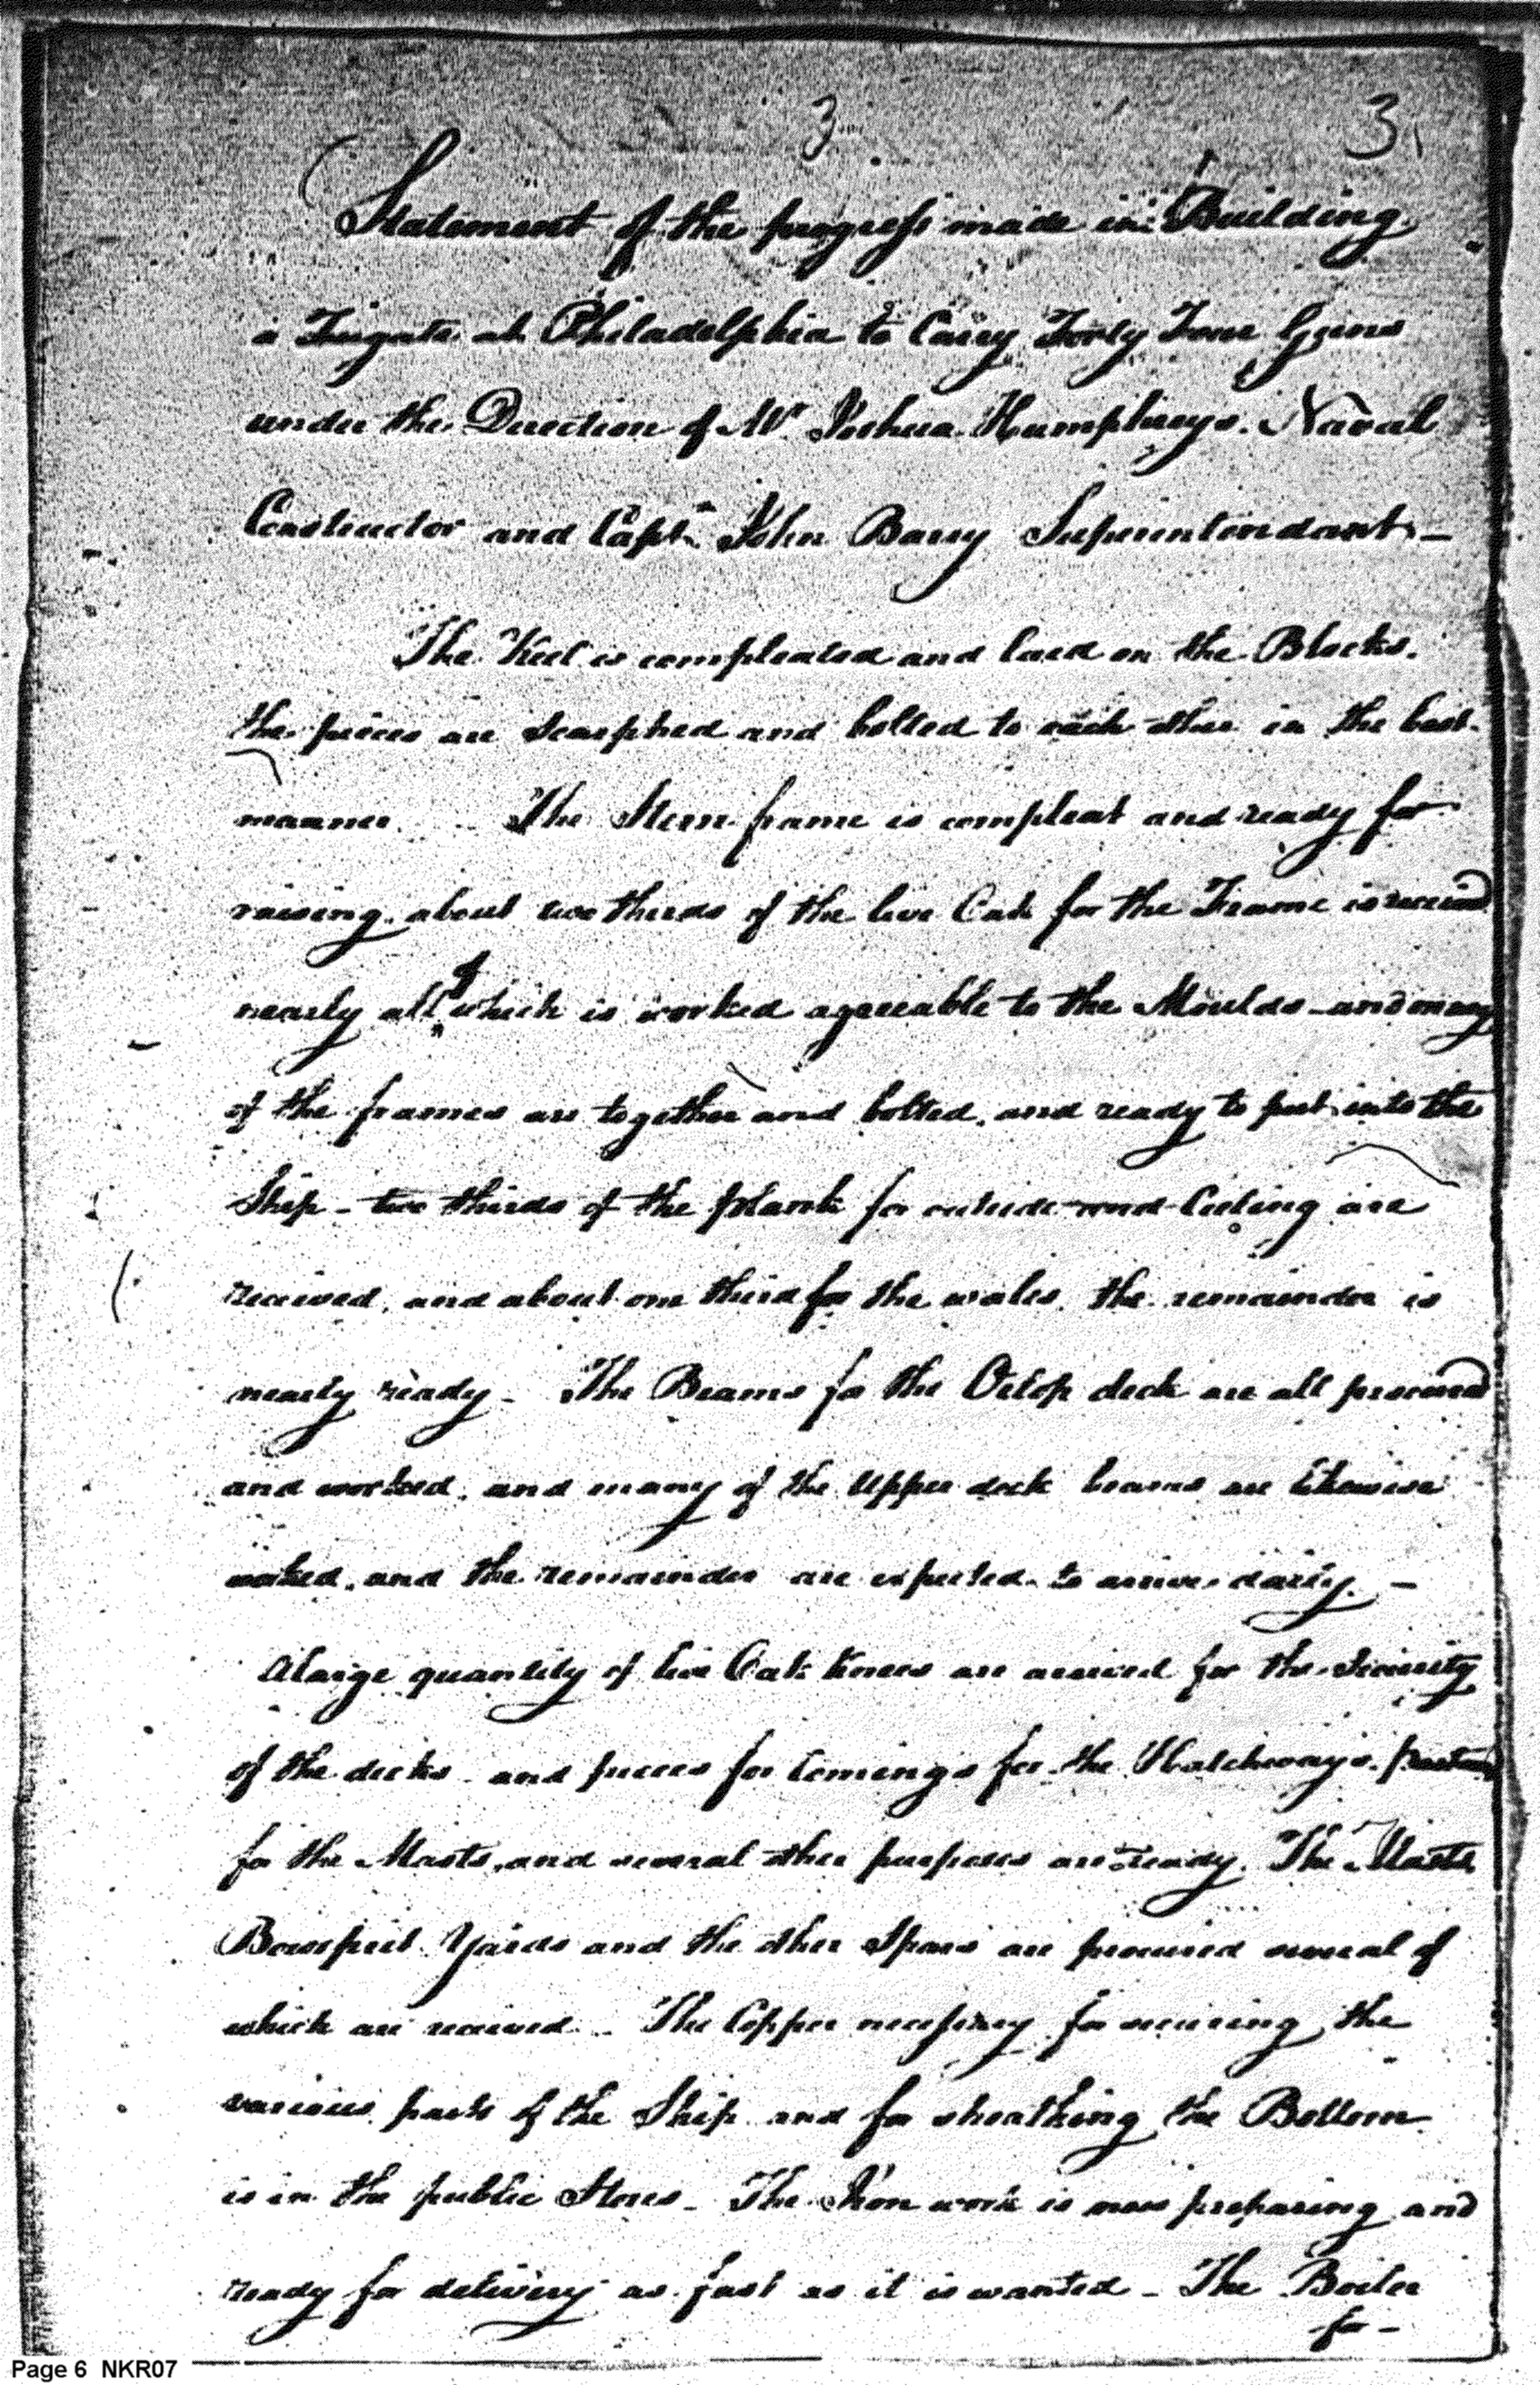 3 3
Statement of the progress made in Building
a Frigate at Philadelphia to Carry Forty Four Guns
under the Direction of Mr. Joshua Humphreys. Naval
Constructor and Capt. John Barry Superintendant _
The Keel is compleated and laid on the Blocks.
the pieces are scarphed and bolted to each other in the best
manner. The Stern frame is compleat and ready for
raising. about two thirds of the live Oak for the Frame is received
nearly all of which is worked agreeable to the Moulds and many
of the frames are together and bolted, and ready to put into the
Ship - two thirds of the plank for outside and Ceeling are
received, and about one third for the wales, the remainder is
nearly ready - The Beams for the Orlop deck are all procured
and worked, and many of the Upper deck beams are likewise
worked, and the remainder are expected to arrive daily. -
A large quantity of live Oak knees are arrived for the security
of the decks and pieces for Comings for the Hatchways,
for the Masts, and several other purposes are ready. The Masts
Bowsprit Yards and the other Spars are procured several of
which are received - The Copper necessary for securing the
various parts of the Ship and for sheathing the Bottom
is in the public Stores - The Iron work is now preparing and
ready for delivery as fast as it is wanted - The Boiler
- for -
Page 6 NKR07